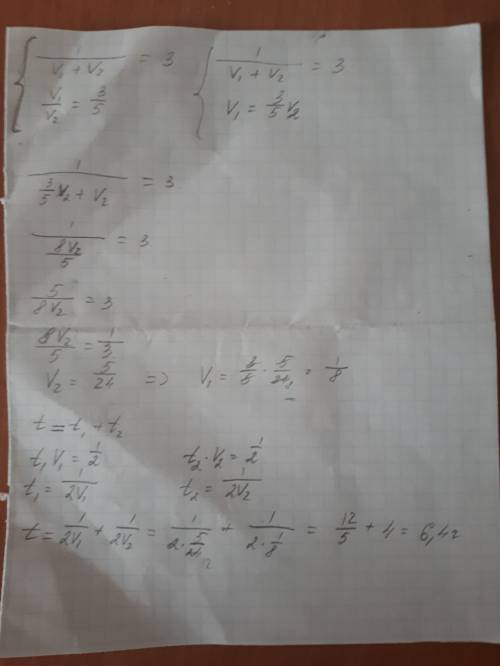 { 1/(V₁ + V₂) = 3    { 1/(V₁ + V₂) = 3
V₁/V₂ = 3/5    V₁ = 3/5 V₂
1/(3/5 V₂ + V₂) = 3
1/(8V₂/5) = 3
5/8V₂ = 3
8V₂/5 = 1/3
V₂ = 5/24 => V₁ = 3/5 · 5/24 = 1/8
t = t₁ + t₂
t₁V₁ = 1/2    t₂·V₂ = 1/2
t₁ = 1/2V₁    t₂ = 1/2V₂
t = 1/2V₁ + 1/2V₂ = 1/(2·5/24) + 1/(2·1/8) = 12/5 + 4 = 6,4г